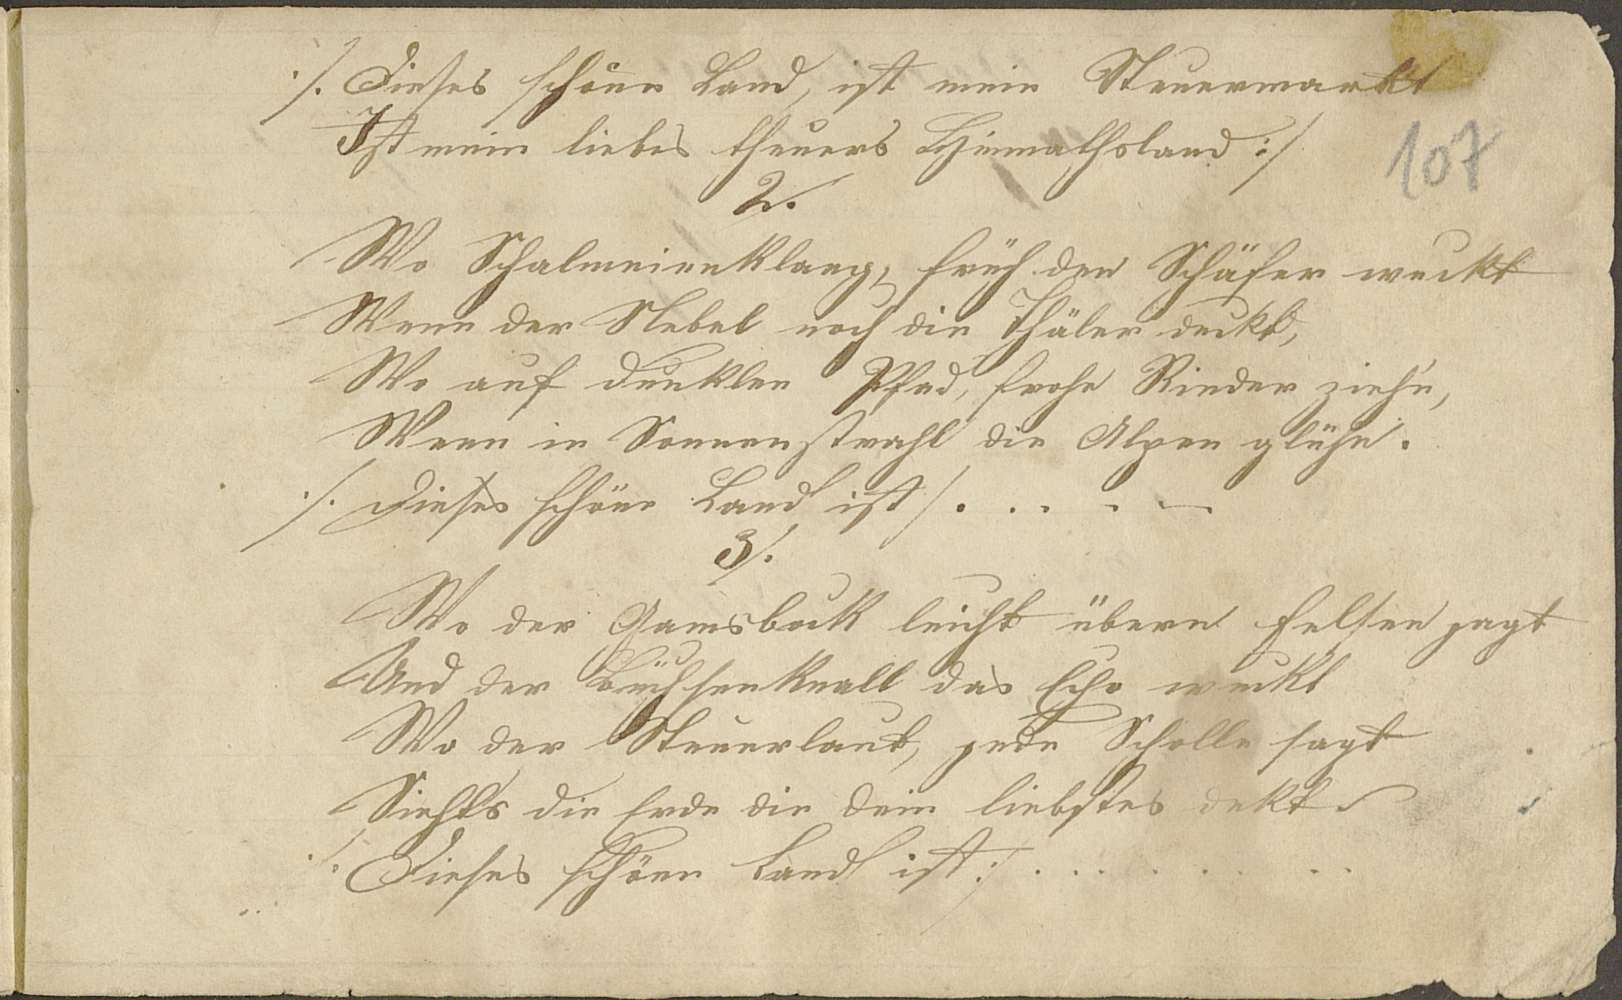 ./. Dieses schöne Land, ist mein Steuermarkt
Ist mein liebes theuers Heimathsland :/
107
2.
Wo Schalmeienklang, früh den Schäfer weckt
Wenn der Nebel noch die Thäler deckt,
Wo auf dunklen Pfad, frohe Rinder zieh'n,
Wenn in Sonnenstrahl die Alpen glühn.
./. Dieses schöne Land ist /. . . . . —
3/.
Wo der Gamsbock leicht übern Felsen jagt
Und der Büchsenknall das Echo weckt
Wo der Steuerlaut, jede Scholle sagt
Sieht's die Erde die dein liebstes dekt
./. Dieses schöne Land ist :/ . . . . . . . .